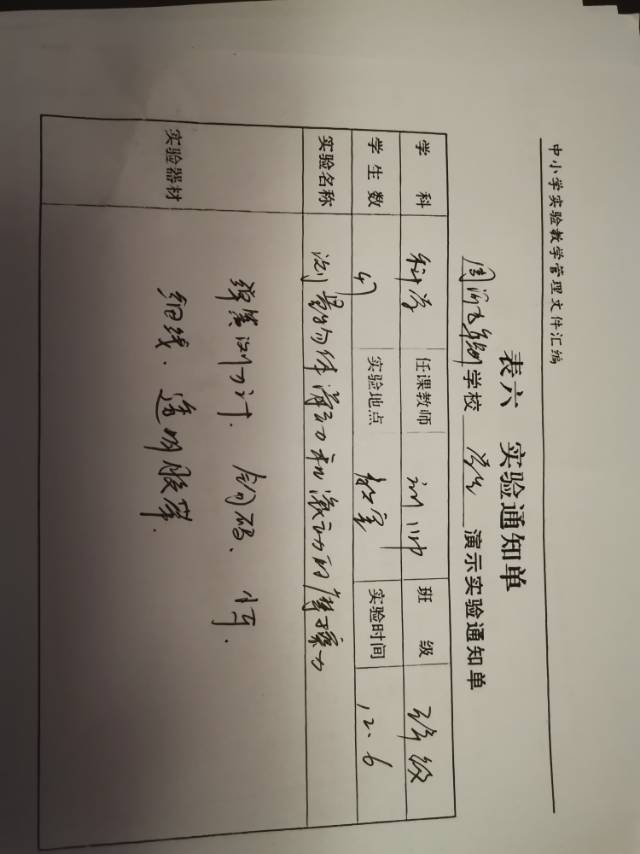 中小学实验教学管理文件汇编
表六 实验通知单
学校 学生 演示实验通知单
学科 科学 任课教师 刘帅 班级 五年级
学生数 47 实验地点 教室 实验时间 12.6
实验名称 测量物体滑动和滚动的摩擦力
实验器材 弹簧测力计、钩码、小车、
细线、透明胶带.